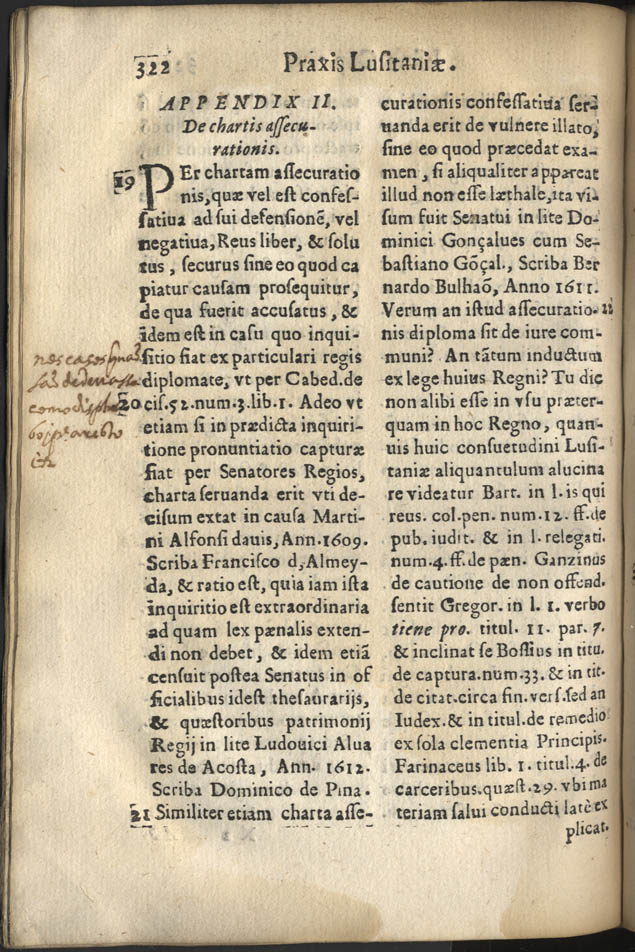 322
Praxis Lusitaniæ.
APPENDIX II.
De chartis assecu-
rationis.
19 PEr chartam assecuratio
nis, quæ vel est confes-
satiua ad sui defensionẽ, vel
negatiua, Reus liber, & solu
tus, securus sine eo quod ca
piatur causam prosequitur,
de qua fuerit accusatus, &
idem est in casu quo inqui-
sitio fiat ex particulari regis
diplomate, vt per Cabed. de
20 cis. 52. num. 3. lib. 1. Adeo vt
etiam si in prædicta inquiri-
tione pronuntiatio capturæ
fiat per Senatores Regios,
charta seruanda erit vti de-
cisum extat in causa Marti-
ni Alfonsi dauis, Ann. 1609.
Scriba Francisco d, Almey-
da, & ratio est, quia iam ista
inquiritio est extraordinaria
ad quam lex pænalis exten-
di non debet, & idem etiã
censuit postea Senatus in of
ficialibus idest thesaurarijs,
& quæstoribus patrimonij
Regij in lite Ludouici Alua
res de Acosta, Ann. 1612.
Scriba Dominico de Pina.
21 Similiter etiam charta asse-
curationis confessatiua ser-
uanda erit de vulnere illato,
sine eo quod præcedat exa-
men, si aliqualiter appareat
illud non esse læthale, ita vi-
sum fuit Senatui in lite Do-
minici Gonçalues cum Se-
bastiano Gõçal., Scriba Ber
nardo Bulhaõ, Anno 1611.
Verum an istud assecuratio- 22
nis diploma sit de iure com-
muni? An tãtum inductum
ex lege huius Regni? Tu dic
non alibi esse in vsu præter-
quam in hoc Regno, quan-
uis huic consuetudini Lusi-
taniæ aliquantulum alucina
re videatur Bart. in l. is qui
reus. col. pen. num. 12. ff. de
pub. iudit. & in l. relegati.
num. 4. ff. de pæn. Ganzinus
de cautione de non offend.
sentit Gregor. in l. 1. verbo
tiene pro. titul. 11. par. 7.
& inclinat se Bossius in titu.
de captura. num. 33. & in tit.
de citat. circa fin. vers. sed an
Iudex. & in titul. de remedio
ex sola clementia Principis.
Farinaceus lib. 1. titul. 4. de
carceribus. quæst. 29. vbi ma
teriam salui conducti latè ex
plicat.
nes casos
de deuassa
como